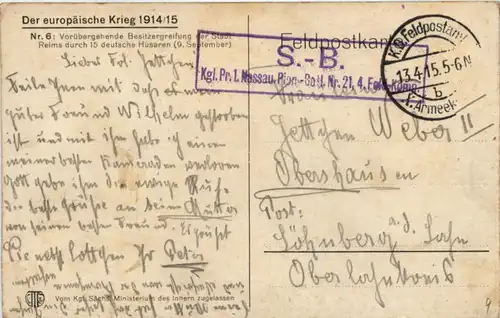 Der europäische Krieg 1914/15
Nr. 6: Vorübergehende Besitzergreifung der Stadt
Reims durch 15 deutsche Husaren (9. September)
Feldpostkarte
S.-B.
Kgl. Pr. 1. Nassau. Pion.-Batl. Nr. 21, 4. Feld-Komp.
K.D. Feldpostamt
13.4.15. 5-6 N
b
Armeek
Liebes Frl. Jettchen
Teile Ihnen mit daß mein
guter Freund Wilhelm gestorben
ist und mit ihm habe ich einen
meiner besten Kameraden verloren
Gott gebe ihm die ewige Ruhe
die beste Grüße an seine Mutter
von seinem besten Freund. Es grüßt
Sie nebst Lottchen Ihr Peter
Jettchen Weber II
Obershausen
Post:
Löhnberg a. d. Lahn
Oberlahnkreis
Vom Kgl. Sächs. Ministerium des Innern zugelassen